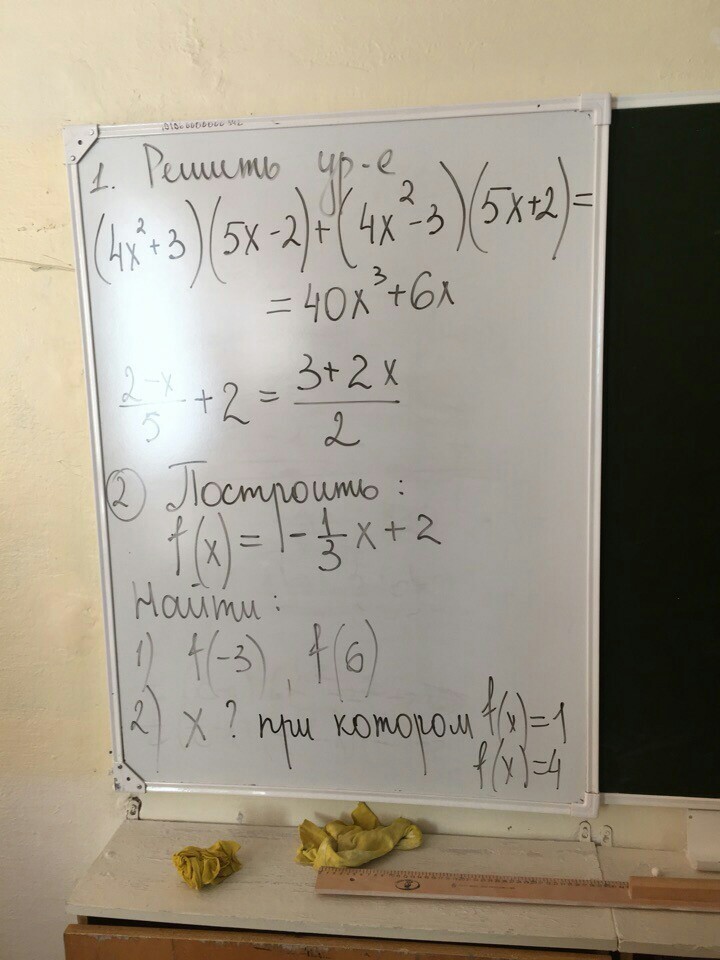 1. Решить ур-е
(4x²+3)(5x-2)+(4x²-3)(5x+2)=
=40x³+6x
(2-x)/5 + 2 = (3+2x)/2
2 Построить:
f(x)= |-1/3 x+2
Найти:
1) f(-3), f(6)
2) x? при котором f(x)=1
f(x)=4